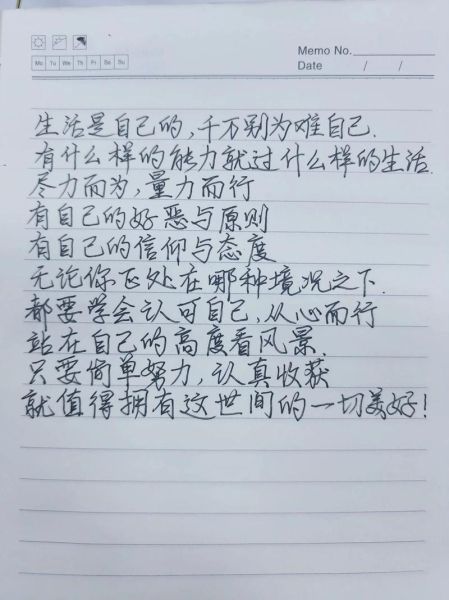 Memo No.
Mo Tu We Th Fr Sa Su
Date / /
生活是自己的,千万别为难自己.
有什么样的能力就过什么样的生活.
尽力而为,量力而行
有自己的好恶与原则
有自己的信仰与态度
无论你正处在哪种境况之下.
都要学会认可自己,从心而行
站在自己的高度看风景.
只要简单努力,认真收获
就值得拥有这世间的一切美好!